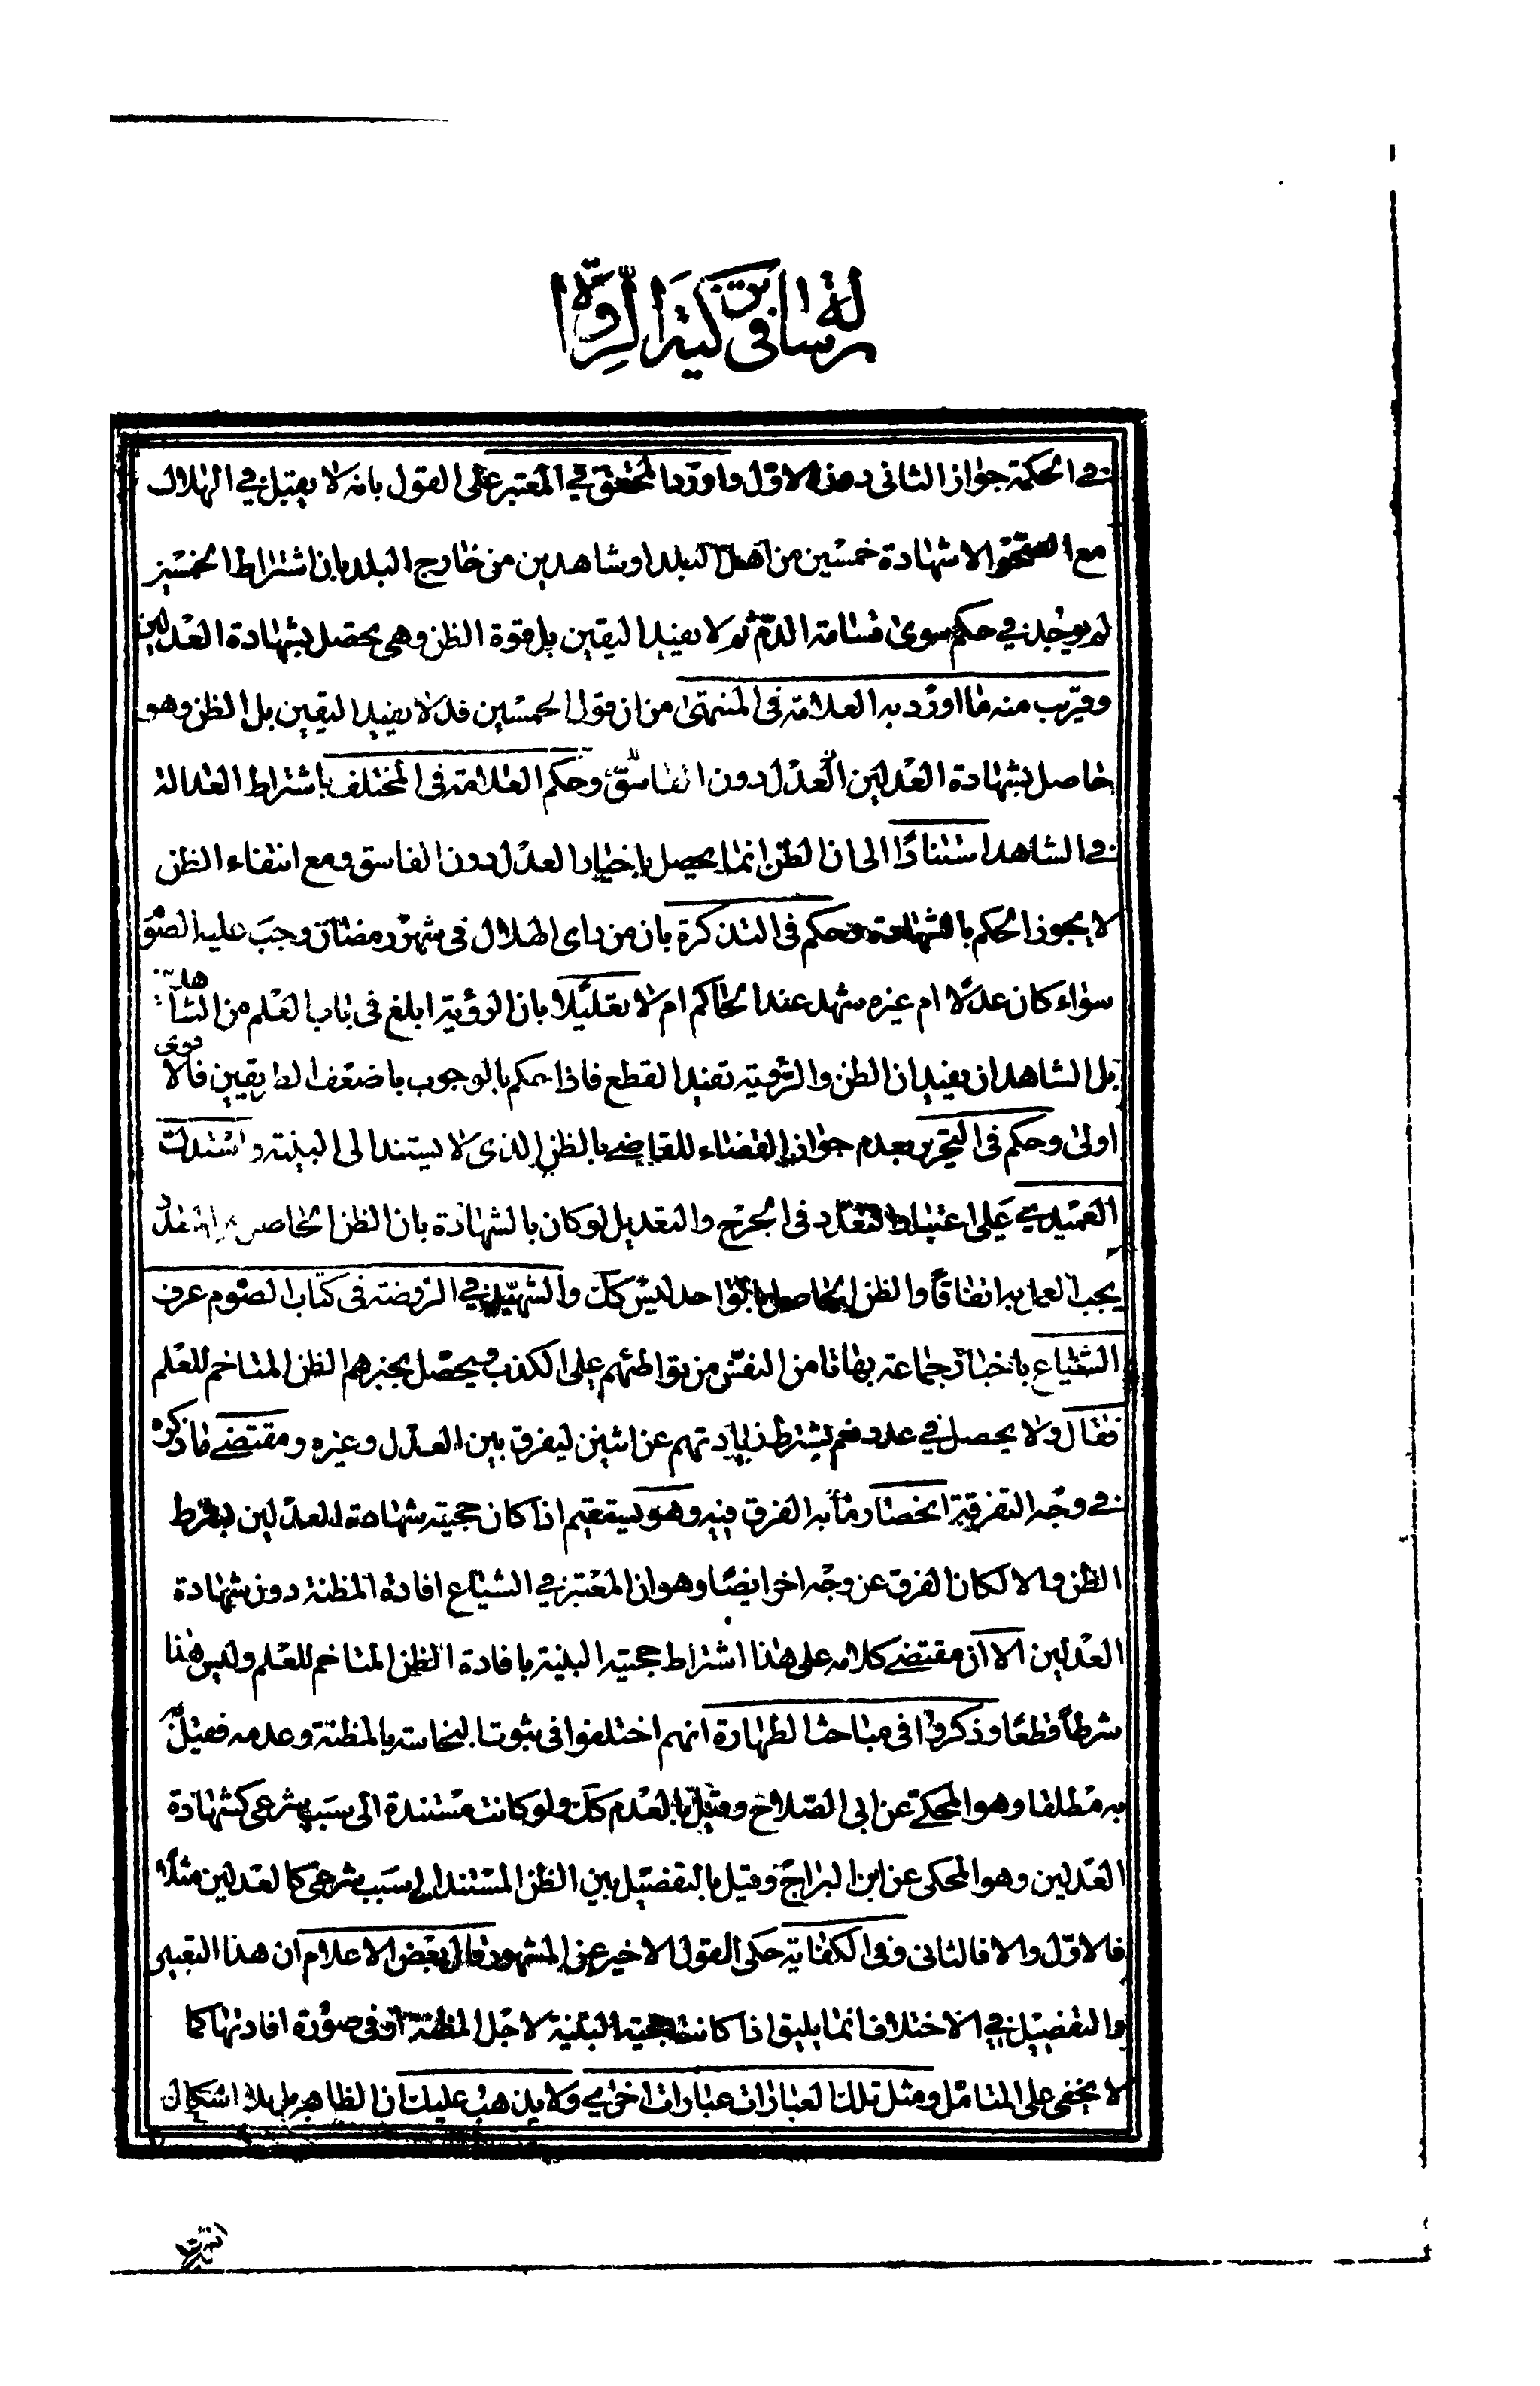 رسالة في تزكية الرواة
في الحكمة جواز الثاني دون الاول واورد المحقق في المعتبر على القول بانه لا يقبل في الهلال
مع الصحو الا شهادة خمسين من اهل البلد او شاهدين من خارج البلد بان اشتراط الخمسين
لم يوجد في حكم سوى قسامة الدم ثم لا يفيد اليقين بل قوة الظن وهي يحصل بشهادة العدلين
وقريب منه ما اورد به العلامة في المنتهى من ان قول الخمسين قد لا يفيد اليقين بل الظن وهو
حاصل بشهادة العدلين العدل دون الفاسق وحكم العلامة في المختلف باشتراط العدالة
في الشاهد استنادًا الى ان الظن انما يحصل باخبار العدل دون الفاسق ومع انتفاء الظن
لا يجوز الحكم بالشهادة وحكم في التذكرة بان من راى الهلال في شهر رمضان وجب عليه الصوم
سواء كان عدلا ام غيره شهد عند الحاكم ام لا تعليلا بان الرؤية ابلغ في باب العلم من الشاهدين
بل الشاهدان يفيدان الظن والرؤية تفيد القطع فاذا حكم بالوجوب باضعف الطريقين فالاقوى
اولى وحكم في التحرير بعدم جواز القضاء للقاضي بالظن الذي لا يستند الى البينة واستدلت
العميدي على اعتبار التعدد في الجرح والتعديل لو كان بالشهادة بان الظن الحاصل
يجب العمل به اتفاقاً والظن الحاصل بالواحد ليس كك والشهيد في الروضة في كتاب الصوم عرف
الشياع باخبار جماعة بها تامن النفس من تواطئهم على الكذب ويحصل بخبرهم الظن المتاخم للعلم
فقال ولا يحصل في عدد نعم يشترط زيادتهم عن اثنين ليفرق بين العدل وغيره ومقتضى ما ذكره
في وجه التفرقة انحصار ما به الفرق فيه وهو يستقيم اذا كان حجية شهادة العدلين بشرط
الظن والا لكان الفرق عن وجه اخر ايضًا وهو ان المعتبر في الشياع افادة المظنة دون شهادة
العدلين الا ان مقتضى كلامه على هذا اشتراط حجية البينة بافادة الظن المتاخم للعلم وليس هذا
شرطاً قطعًا وذكروا في مباحث الطهارة انهم اختلفوا في ثبوت النجاسة بالمظنة وعدمه فقيل
به مطلقا وهو المحكي عن ابي الصلاح وقيل بالعدم كك ولو كانت مستندة الى سبب شرعي كشهادة
العدلين وهو المحكي عن ابن البراج وقيل بالتفصيل بين الظن المستند الى سبب شرعي كالعدلين مثلا
فالاول والا فالثاني وفي الكفاية حكى القول الاخير عن المشهور قال بعض الاعلام ان هذا التعبير
والتفصيل في الاختلاف انما يليق اذا كانت حجية البينة لاجل المظنة او في صورة افادتها كما
لا يخفى على المتامل ومثل تلك العبارات عبارات اخرى ولا يذهب عليك ان الظاهر بل بلا اشكال